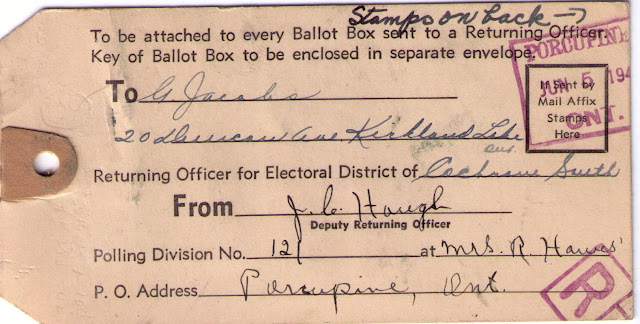 Stamps on back →
To be attached to every Ballot Box sent to a Returning Officer.
Key of Ballot Box to be enclosed in separate envelope.
PORCUPINE
JUN 5 194
ONT.
If Sent by
Mail Affix
Stamps
Here
To G. Jacobs
20 Duncan Ave Kirkland Lake
Ont.
Returning Officer for Electoral District of Cochrane South
From J. C. Haugh
Deputy Returning Officer
Polling Division No. 12 at Mrs. R. Hawes'
P. O. Address Porcupine, Ont.
R